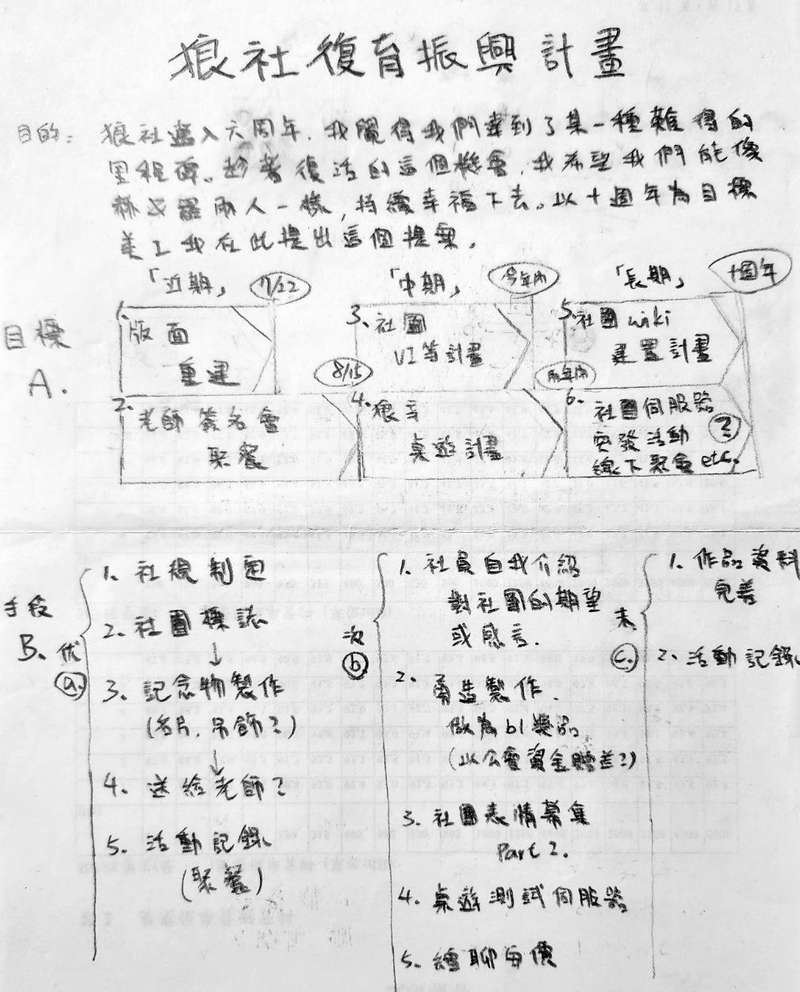 狼社復育振興計畫
目的：狼社邁入六周年，我覺得我們達到了某一種難得的
里程碑。趁著復活的這個機會，我希望我們能像
羅兩人一樣，持續幸福下去。以十週年為目標
我在此提出這個提案。
「近期」 7/22 「中期」 今年內 「長期」 十週年
目標
A.
1. 版面
重建
3. 社團
VI等計畫
5. 社團wiki
建置計畫
8/15
兩年內
2. 老師簽名會
聚餐
4. 狼辛
桌遊計畫
6. 社團伺服器
突發活動
線下聚會etc.
?
手段
B. 优
a.
1. 社規制定
2. 社團標誌
↓
3. 記念物製作
(名片,吊飾?)
↓
4. 送給老師?
5. 活動記錄
(聚餐)
次
b
1. 社員自我介紹
對社團的期望
或感言.
2. 勇造製作.
做為bl獎品,
(以公會資金贈差?)
3. 社團表情募集
Part 2.
4. 桌遊測試伺服器
5. 繪聊每價
末
c.
1. 作品資料
完善
2. 活動記錄